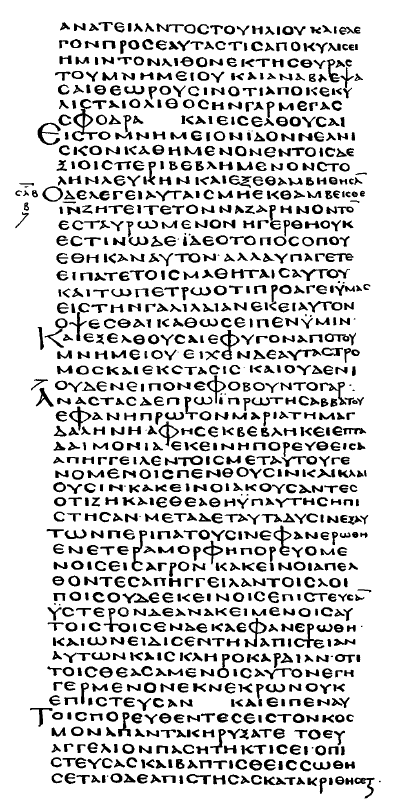 ΑΝΑΤΕΙΛΑΝΤΟϹΤΟΥΗΛΙΟΥ ΚΑΙΕΛΕ
ΓΟΝΠΡΟϹΕΑΥΤΑϹΤΙϹΑΠΟΚΥΛΙϹΕΙ
ΗΜΙΝΤΟΝΛΙΘΟΝΕΚΤΗϹΘΥΡΑϹ
ΤΟΥΜΝΗΜΕΙΟΥ ΚΑΙΑΝΑΒΛΕΨΑ
ϹΑΙΘΕΩΡΟΥϹΙΝΟΤΙΑΠΟΚΕΚΥ
ΛΙϹΤΑΙΟΛΙΘΟϹΗΝΓΑΡΜΕΓΑϹ
ϹΦΟΔΡΑ ΚΑΙΕΙϹΕΛΘΟΥϹΑΙ
ΕΙϹΤΟΜΝΗΜΕΙΟΝΙΔΟΝΝΕΑΝΙ
ϹΚΟΝΚΑΘΗΜΕΝΟΝΕΝΤΟΙϹΔΕ
ΞΙΟΙϹΠΕΡΙΒΕΒΛΗΜΕΝΟΝϹΤΟ
ΛΗΝΛΕΥΚΗΝΚΑΙΕΞΕΘΑΜΒΗΘΗϹΑ̅
ΟΔΕΛΕΓΕΙΑΥΤΑΙϹΜΗΕΚΘΑΜΒΕΙϹΘΕ
Ι̅Ν̅ΖΗΤΕΙΤΕΤΟΝΝΑΖΑΡΗΝΟΝΤΟ̅
ΕϹΤΑΥΡΩΜΕΝΟΝ ΗΓΕΡΘΗΟΥΚ
ΕϹΤΙΝΩΔΕ·ΪΔΕΟΤΟΠΟϹΟΠΟΥ
ΕΘΗΚΑΝΑΥΤΟΝ·ΑΛΛΑΥΠΑΓΕΤΕ
ΕΙΠΑΤΕΤΟΙϹΜΑΘΗΤΑΙϹΑΥΤΟΥ
ΚΑΙΤΩΠΕΤΡΩΟΤΙΠΡΟΑΓΕΙΫΜΑϹ
ΕΙϹΤΗΝΓΑΛΙΛΑΙΑΝΕΚΕΙΑΥΤΟΝ
ΟΨΕϹΘΑΙΚΑΘΩϹΕΙΠΕΝΫΜΙΝ·
ΚΑΙΕΞΕΛΘΟΥϹΑΙΕΦΥΓΟΝΑΠΟΤΟΥ
ΜΝΗΜΕΙΟΥ ΕΙΧΕΝΔΕΑΥΤΑϹΤΡΟ
ΜΟϹΚΑΙΕΚϹΤΑϹΙϹ ΚΑΙΟΥΔΕΝΙ
ΟΥΔΕΝΕΙΠΟΝΕΦΟΒΟΥΝΤΟΓΑΡ:
ΑΝΑϹΤΑϹΔΕΠΡΩΪΠΡΩΤΗϹΑΒΒΑΤΟΥ
ΕΦΑΝΗΠΡΩΤΟΝΜΑΡΙΑΤΗΜΑΓ
ΔΑΛΗΝΗ·ΑΦΗϹΕΚΒΕΒΛΗΚΕΙΕΠΤΑ
ΔΑΙΜΟΝΙΑ ΕΚΕΙΝΗΠΟΡΕΥΘΕΙϹΑ
ΑΠΗΓΓΕΙΛΕΝΤΟΙϹΜΕΤΑΥΤΟΥΓΕ
ΝΟΜΕΝΟΙϹΠΕΝΘΟΥϹΙΝΚΑΙΚΛΑΙ
ΟΥϹΙΝ·ΚΑΚΕΙΝΟΙΑΚΟΥϹΑΝΤΕϹ
ΟΤΙΖΗΚΑΙΕΘΕΑΘΗΫΠΑΥΤΗϹΗΠΙ
ϹΤΗϹΑΝ·ΜΕΤΑΔΕΤΑΥΤΑΔΥϹΙΝΕΞΑΥ
ΤΩΝΠΕΡΙΠΑΤΟΥϹΙΝΕΦΑΝΕΡΩΘΗ
ΕΝΕΤΕΡΑΜΟΡΦΗΠΟΡΕΥΟΜΕ
ΝΟΙϹΕΙϹΑΓΡΟΝ ΚΑΚΕΙΝΟΙΑΠΕΛ
ΘΟΝΤΕϹΑΠΗΓΓΕΙΛΑΝΤΟΙϹΛΟΙ
ΠΟΙϹΟΥΔΕΕΚΕΙΝΟΙϹΕΠΙϹΤΕΥϹΑ̅
ΫϹΤΕΡΟΝΔΕΑΝΑΚΕΙΜΕΝΟΙϹΑΥ
ΤΟΙϹΤΟΙϹΕΝΔΕΚΑΕΦΑΝΕΡΩΘΗ·
ΚΑΙΩΝΕΙΔΙϹΕΝΤΗΝΑΠΙϹΤΕΙΑΝ
ΑΥΤΩΝΚΑΙϹΚΛΗΡΟΚΑΡΔΙΑΝ·ΟΤΙ
ΤΟΙϹΘΕΑϹΑΜΕΝΟΙϹΑΥΤΟΝΕΓΗ
ΓΕΡΜΕΝΟΝΕΚΝΕΚΡΩΝΟΥΚ
ΕΠΙϹΤΕΥϹΑΝ ΚΑΙΕΙΠΕΝΑΥ
ΤΟΙϹΠΟΡΕΥΘΕΝΤΕϹΕΙϹΤΟΝΚΟϹ
ΜΟΝΑΠΑΝΤΑΚΗΡΥΞΑΤΕ ΤΟΕΥ
ΑΓΓΕΛΙΟΝΠΑϹΗΤΗΚΤΙϹΕΙ·ΟΠΙ
ϹΤΕΥϹΑϹΚΑΙΒΑΠΤΙϹΘΕΙϹϹΩΘΗ
ϹΕΤΑΙ·ΟΔΕΑΠΙϹΤΗϹΑϹΚΑΤΑΚΡΙΘΗϹΕΤ